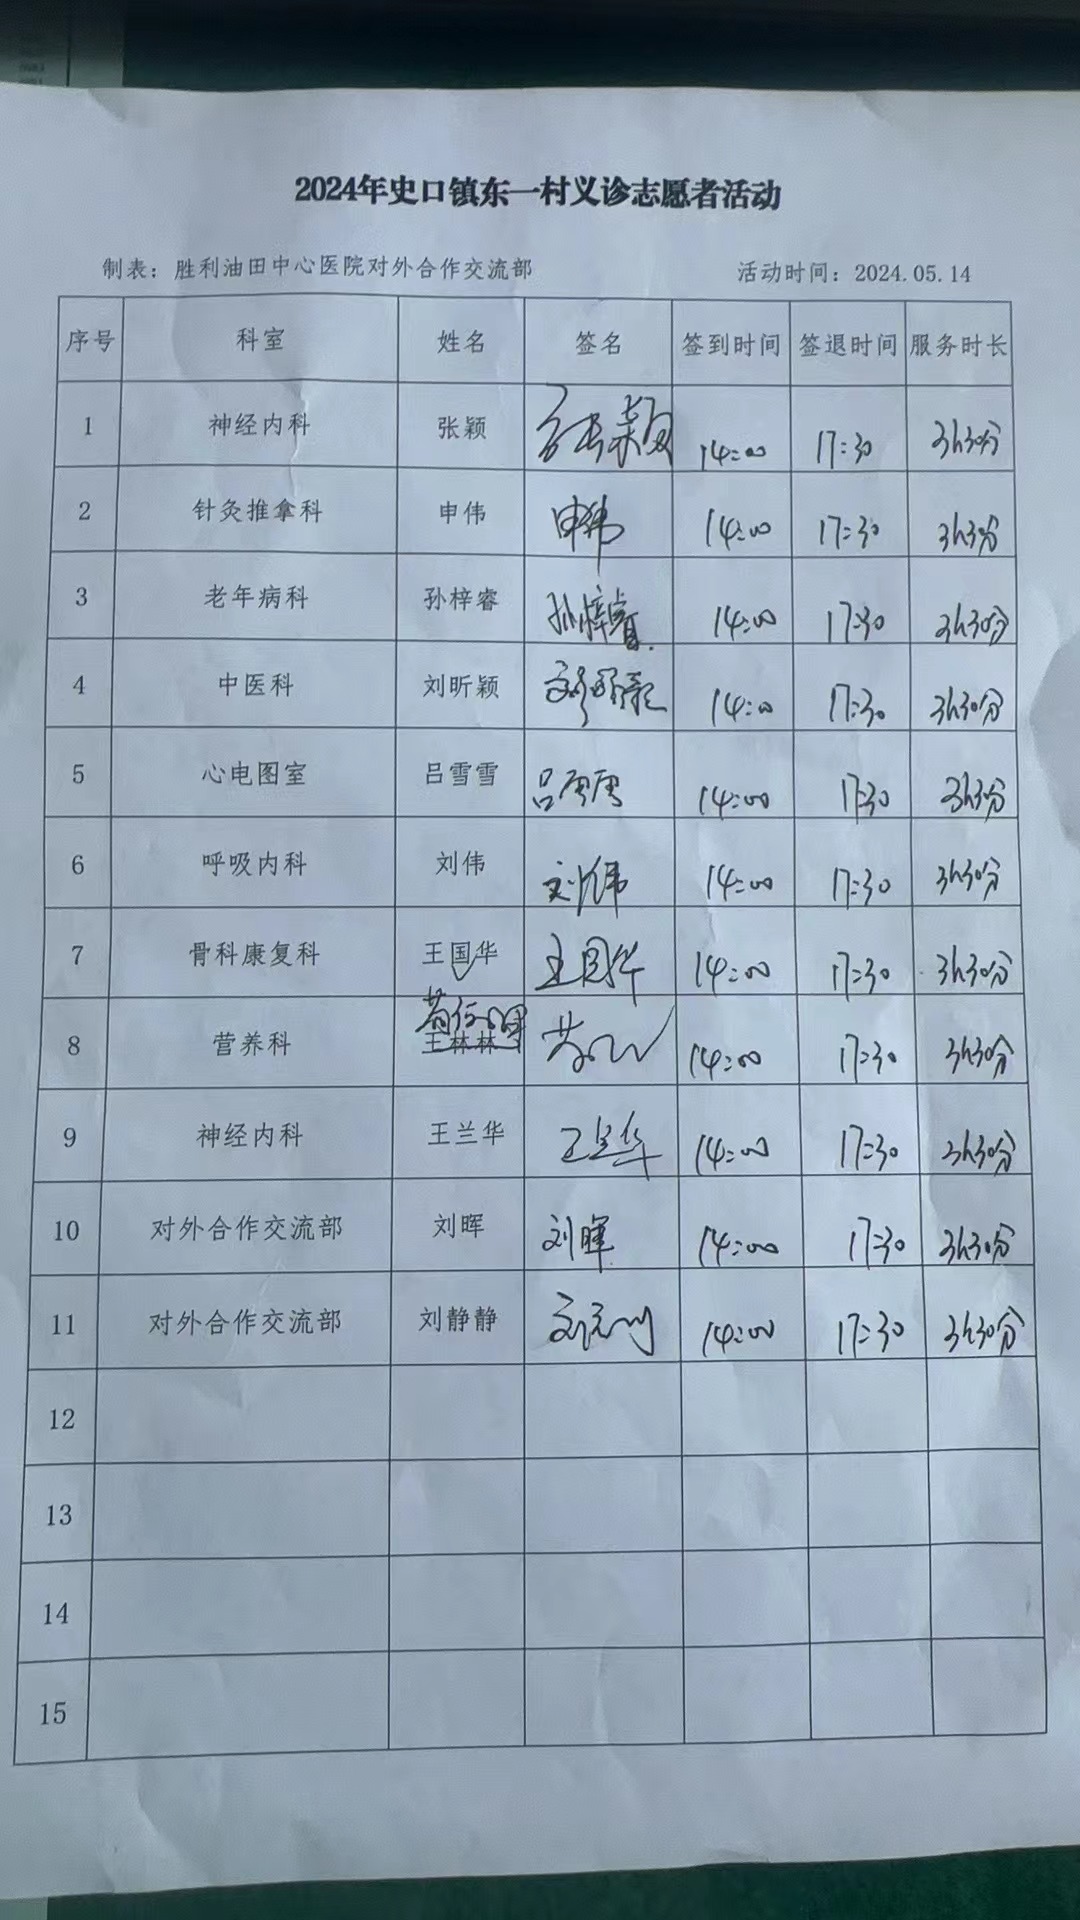 2024年史口镇东一村义诊志愿者活动
制表：胜利油田中心医院对外合作交流部 活动时间：2024.05.14
序号 科室 姓名 签名 签到时间 签退时间 服务时长
1 神经内科 张颖 张颖 14:00 17:30 3h30分
2 针灸推拿科 申伟 申伟 14:00 17:30 3h30分
3 老年病科 孙梓睿 孙梓睿 14:00 17:30 3h30分
4 中医科 刘昕颖 14:00 17:30 3h30分
5 心电图室 吕雪雪 吕雪雪 14:00 17:30 3h30分
6 呼吸内科 刘伟 刘伟 14:00 17:30 3h30分
7 骨科康复科 王国华 王国华 14:00 17:30 3h30分
8 营养科 王林林 14:00 17:30 3h30分
9 神经内科 王兰华 王兰华 14:00 17:30 3h30分
10 对外合作交流部 刘晖 刘晖 14:00 17:30 3h30分
11 对外合作交流部 刘静静 14:00 17:30 3h30分
12
13
14
15